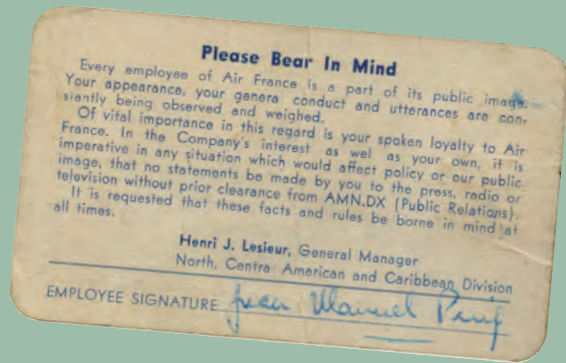 Please Bear In Mind
Every employee of Air France is a part of its public image.
Your appearance, your genera conduct and utterances are con-
stantly being observed and weighed.
Of vital importance in this regard is your spoken loyalty to Air
France. In the Company's interest as wel as your own, it is
imperative in any situation which would affect policy or our public
image, that no statements be made by you to the press, radio or
television without prior clearance from AMN.DX (Public Relations).
It is requested that these facts and rules be borne in mind at
all times.
Henri J. Lesieur, General Manager
North, Centra American and Caribbean Division
EMPLOYEE SIGNATURE Manuel